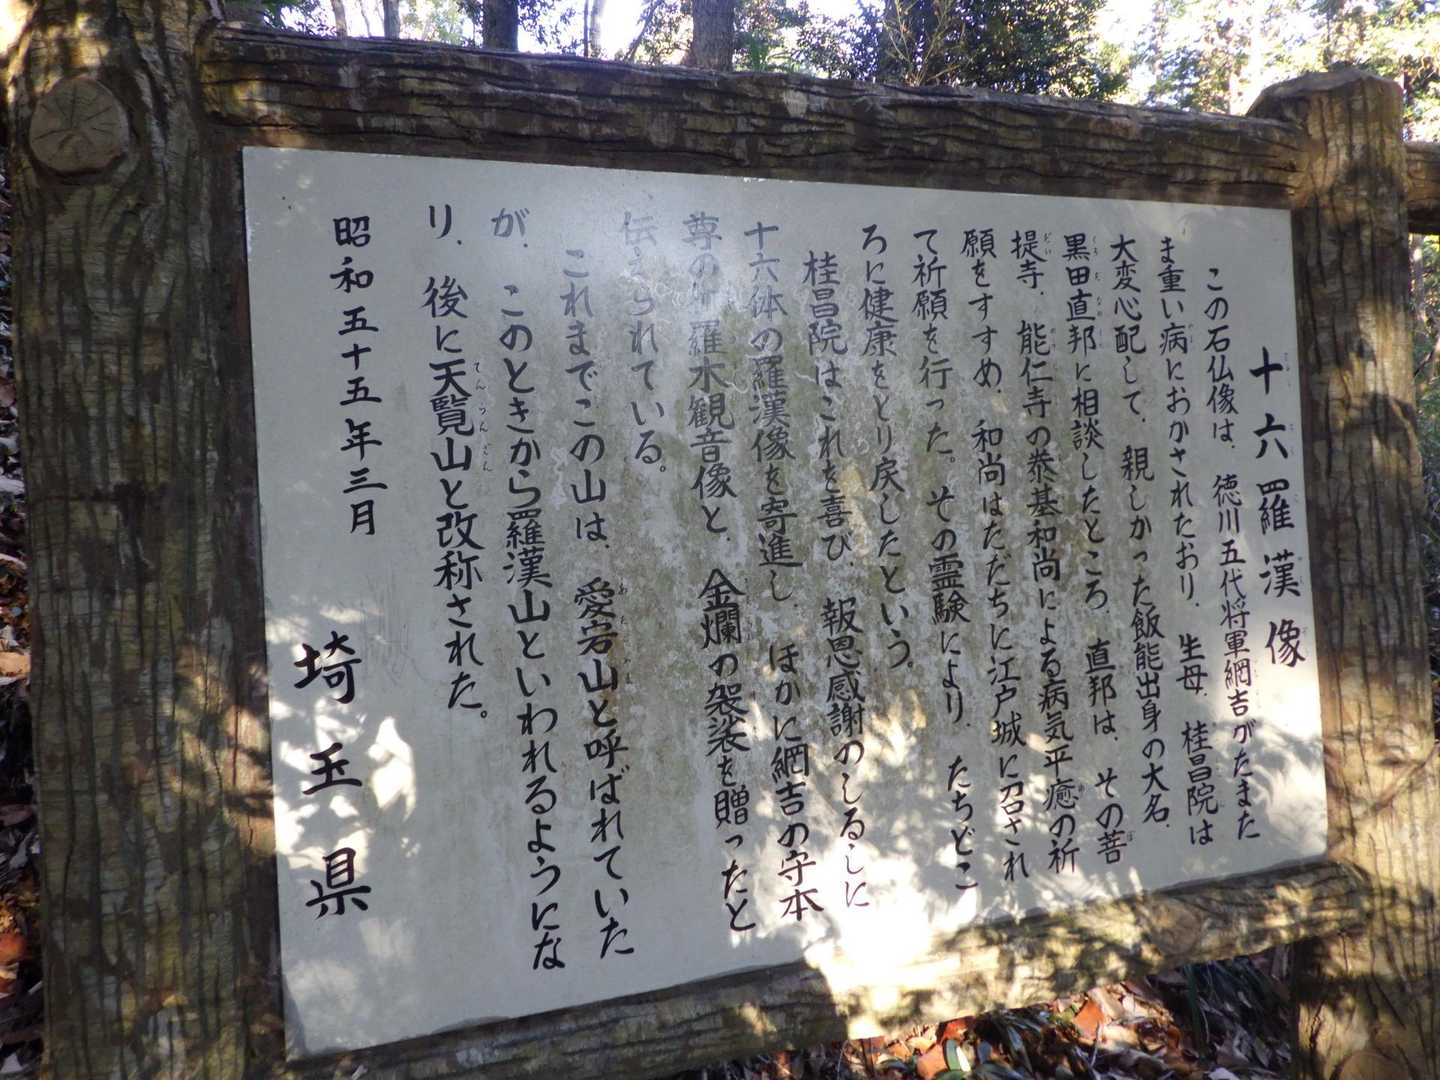 十六羅漢像
この石仏像は、徳川五代将軍綱吉がたまた
ま重い病におかされたおり、生母、桂昌院は
大変心配して、親しかった飯能出身の大名、
黒田直邦に相談したところ、直邦は、その菩
提寺、能仁寺の泰基和尚による病気平癒の祈
願をすすめ、和尚はただちに江戸城に召され
て祈願を行った。その霊験により、たちどこ
ろに健康をとり戻したという。
桂昌院はこれを喜び、報恩感謝のしるしに
十六体の羅漢像を寄進し、ほかに綱吉の守本
尊の羅水観音像と、金襴の袈裟を贈ったと
伝えられている。
これまでこの山は、愛宕山と呼ばれていた
が、このときから羅漢山といわれるようにな
り、後に天覧山と改称された。
昭和五十五年三月
埼玉県